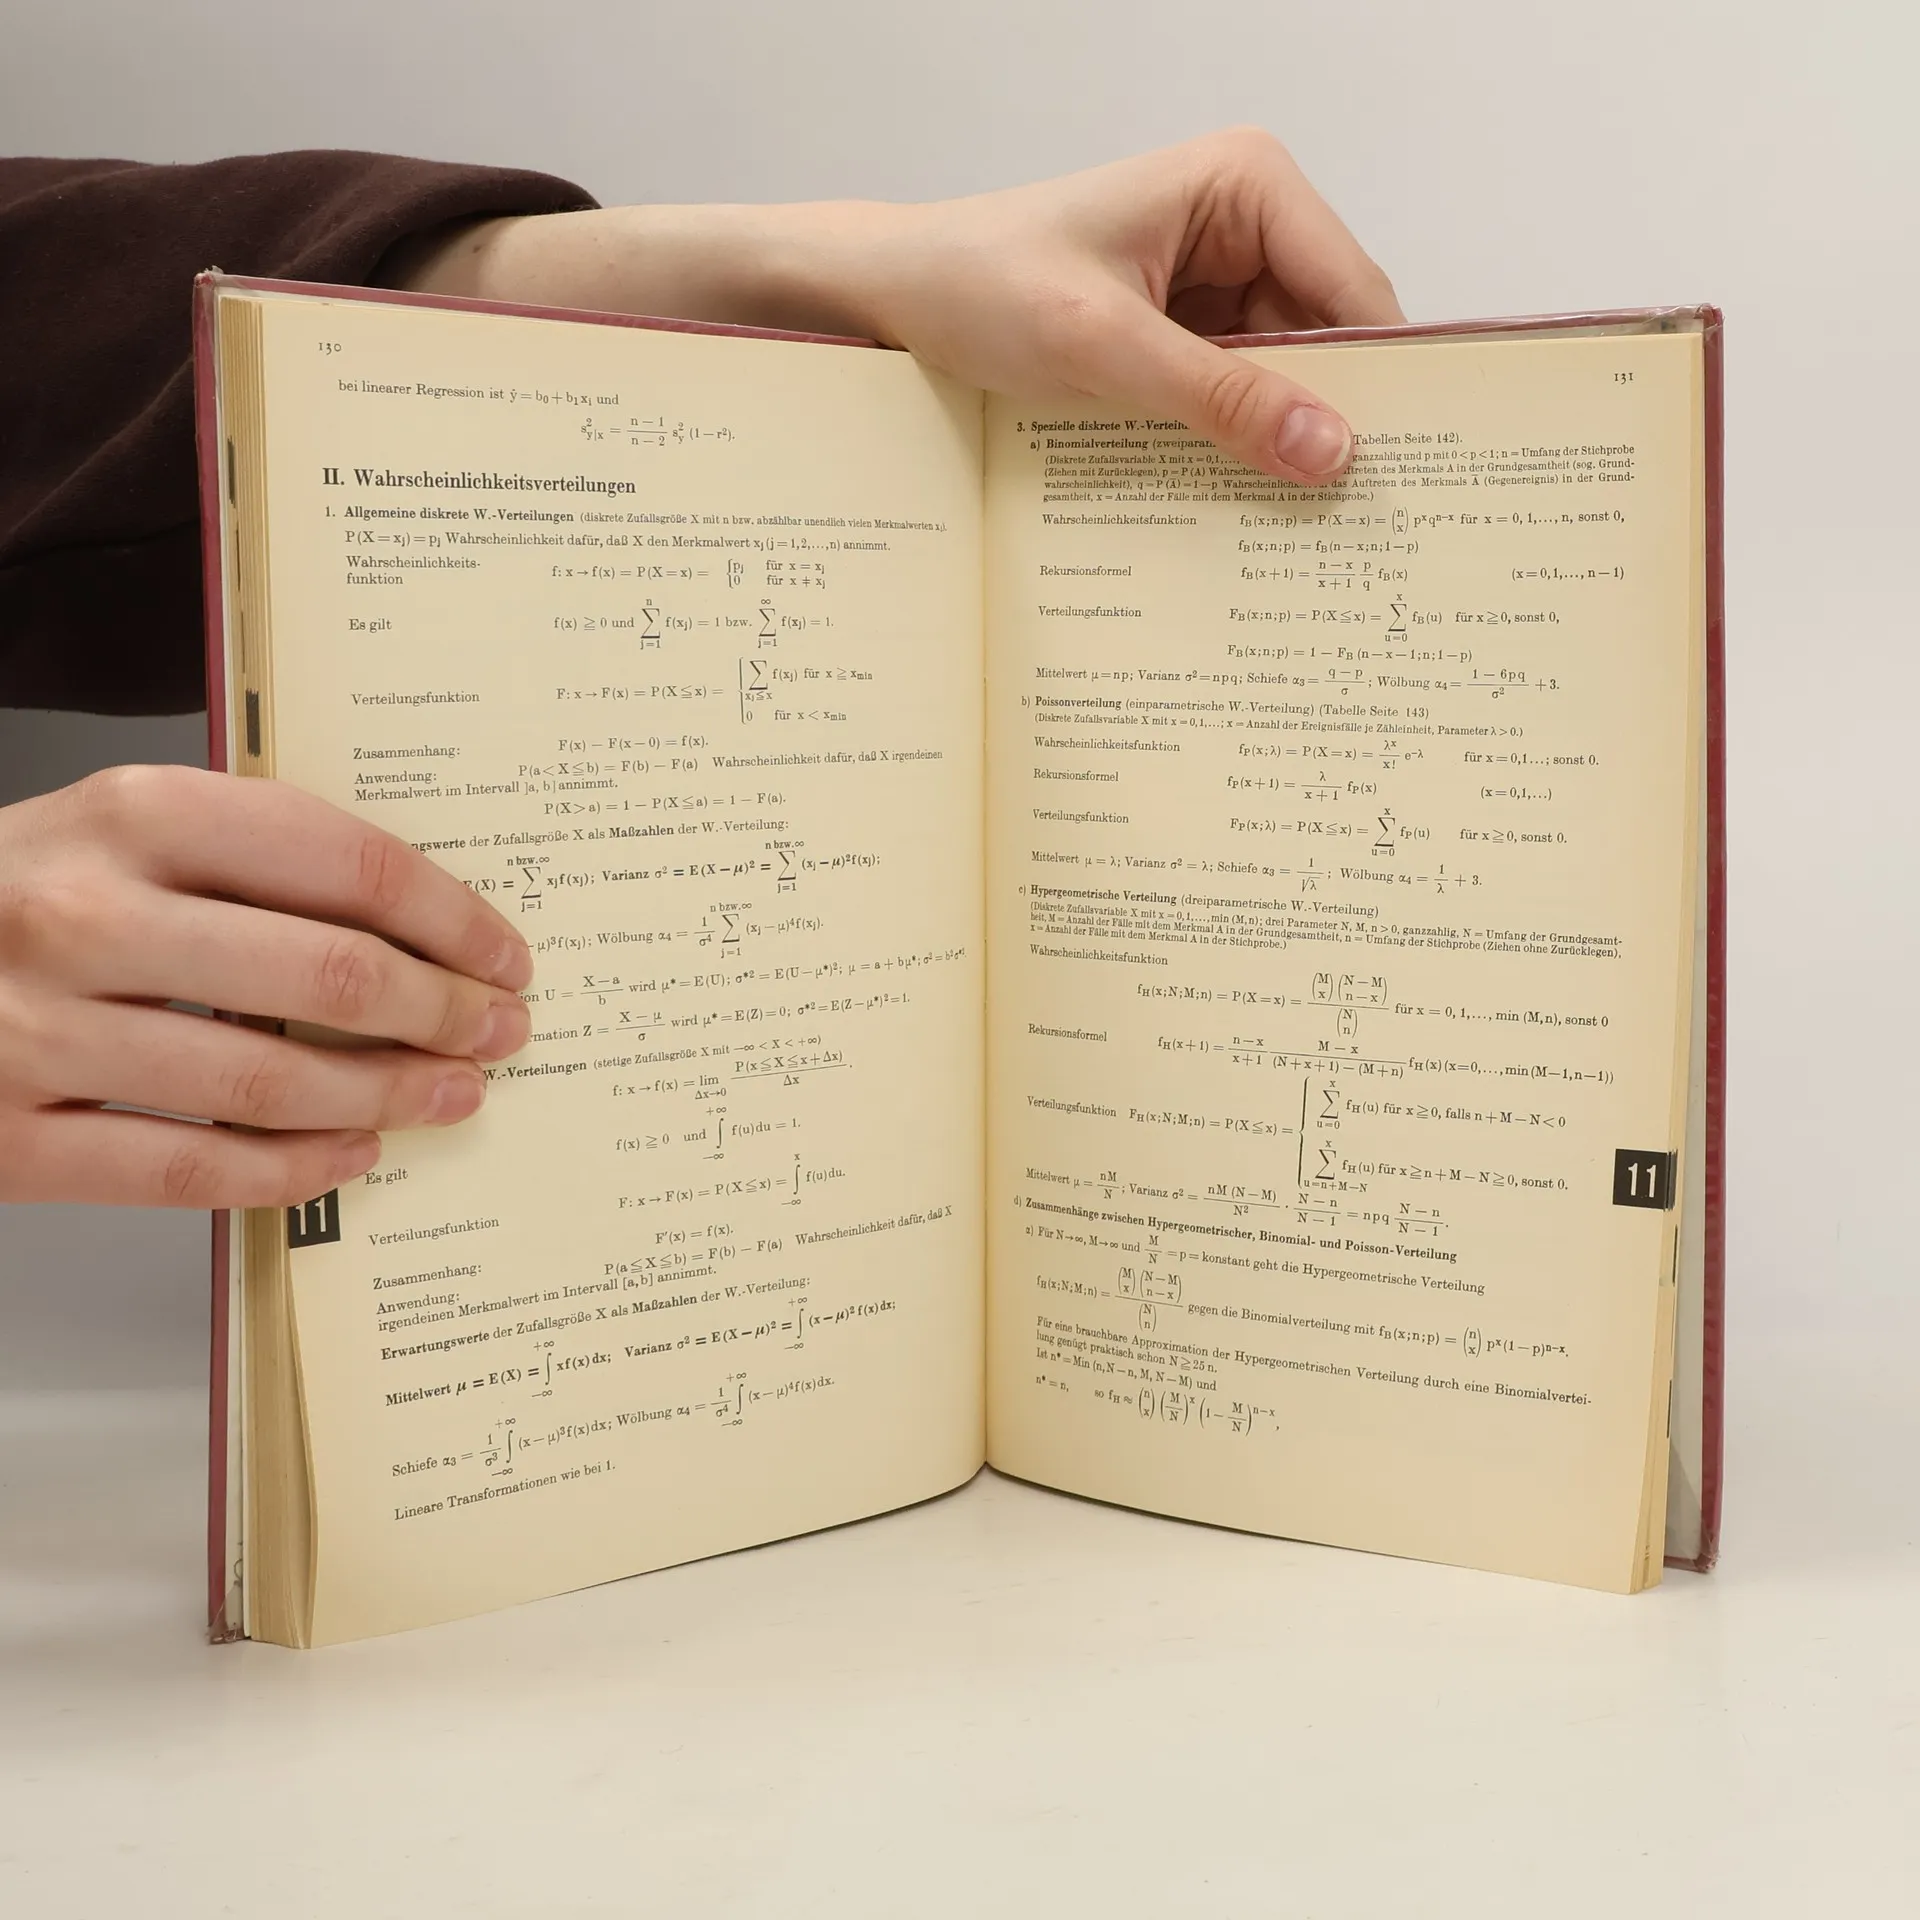 130
bei linearer Regression ist ŷ = b₀ + b₁xᵢ und
s²y|x = (n − 1)/(n − 2) s²y (1 − r²).
II. Wahrscheinlichkeitsverteilungen
1. Allgemeine diskrete W.-Verteilungen (diskrete Zufallsgröße X mit n bzw. abzählbar unendlich vielen Merkmalwerten xⱼ).
P(X = xⱼ) = pⱼ Wahrscheinlichkeit dafür, daß X den Merkmalwert xⱼ (j = 1,2,...,n) annimmt.
Wahrscheinlichkeits-
funktion f: x → f(x) = P(X = x) = { pⱼ für x = xⱼ
0 für x ≠ xⱼ
Es gilt f(x) ≧ 0 und ∑_{j=1}^{n} f(xⱼ) = 1 bzw. ∑_{j=1}^{∞} f(xⱼ) = 1.
Verteilungsfunktion F: x → F(x) = P(X ≦ x) = { ∑_{xⱼ≦x} f(xⱼ) für x ≧ xmin
0 für x < xmin
Zusammenhang: F(x) − F(x − 0) = f(x).
Anwendung: P(a < X ≦ b) = F(b) − F(a) Wahrscheinlichkeit dafür, daß X irgendeinen
Merkmalwert im Intervall ]a, b] annimmt.
P(X > a) = 1 − P(X ≦ a) = 1 − F(a).
der Zufallsgröße X als Maßzahlen der W.-Verteilung:
(X) = ∑_{j=1}^{n bzw. ∞} xⱼf(xⱼ); Varianz σ² = E(X − μ)² = ∑_{j=1}^{n bzw. ∞} (xⱼ − μ)²f(xⱼ);
− μ)³f(xⱼ); Wölbung α₄ = 1/σ⁴ ∑_{j=1}^{n bzw. ∞} (xⱼ − μ)⁴f(xⱼ).
U = (X − a)/b wird μ* = E(U); σ*² = E(U − μ*)²; μ = a + bμ*; σ² = b²σ*².
Z = (X − μ)/σ wird μ* = E(Z) = 0; σ*² = E(Z − μ*)² = 1.
W.-Verteilungen (stetige Zufallsgröße X mit −∞ < X < +∞)
f: x → f(x) = lim_{Δx→0} P(x ≦ X ≦ x + Δx)/Δx.
Es gilt f(x) ≧ 0 und ∫_{−∞}^{+∞} f(u)du = 1.
Verteilungsfunktion F: x → F(x) = P(X ≦ x) = ∫_{−∞}^{x} f(u)du.
Zusammenhang: F′(x) = f(x).
Anwendung: P(a ≦ X ≦ b) = F(b) − F(a) Wahrscheinlichkeit dafür, daß X
irgendeinen Merkmalwert im Intervall [a,b] annimmt.
Erwartungswerte der Zufallsgröße X als Maßzahlen der W.-Verteilung:
Mittelwert μ = E(X) = ∫_{−∞}^{+∞} xf(x)dx; Varianz σ² = E(X − μ)² = ∫_{−∞}^{+∞} (x − μ)² f(x)dx;
Schiefe α₃ = 1/σ³ ∫_{−∞}^{+∞} (x − μ)³f(x)dx; Wölbung α₄ = 1/σ⁴ ∫_{−∞}^{+∞} (x − μ)⁴f(x)dx.
Lineare Transformationen wie bei 1.
11
131
3. Spezielle diskrete Tabellen Seite 142).
a) Binomialverteilung
(Diskrete Zufallsvariable X mit x = 0,1,..., ganzzahlig und p mit 0 < p < 1; n = Umfang der Stichprobe
(Ziehen mit Zurücklegen), p = P(A) des Merkmals A in der Grundgesamtheit (sog. Grund-
wahrscheinlichkeit), q = P(Ā) = 1 − p das Auftreten des Merkmals Ā (Gegenereignis) in der Grund-
gesamtheit, x = Anzahl der Fälle mit dem Merkmal A in der Stichprobe.)
Wahrscheinlichkeitsfunktion f_B(x;n;p) = P(X = x) = (n über x) pˣqⁿ⁻ˣ für x = 0, 1,..., n, sonst 0,
f_B(x;n;p) = f_B(n − x;n;1 − p)
Rekursionsformel f_B(x + 1) = (n − x)/(x + 1) p/q f_B(x) (x = 0,1,..., n − 1)
Verteilungsfunktion F_B(x;n;p) = P(X ≦ x) = ∑_{u=0}^{x} f_B(u) für x ≧ 0, sonst 0,
F_B(x;n;p) = 1 − F_B(n − x − 1;n;1 − p)
Mittelwert μ = np; Varianz σ² = npq; Schiefe α₃ = (q − p)/σ; Wölbung α₄ = (1 − 6pq)/σ² + 3.
b) Poissonverteilung (einparametrische W.-Verteilung) (Tabelle Seite 143)
(Diskrete Zufallsvariable X mit x = 0,1,...; x = Anzahl der Ereignisfälle je Zähleinheit, Parameter λ > 0.)
Wahrscheinlichkeitsfunktion f_P(x;λ) = P(X = x) = λˣ/x! e^{−λ} für x = 0,1...; sonst 0.
Rekursionsformel f_P(x + 1) = λ/(x + 1) f_P(x) (x = 0,1,...)
Verteilungsfunktion F_P(x;λ) = P(X ≦ x) = ∑_{u=0}^{x} f_P(u) für x ≧ 0, sonst 0.
Mittelwert μ = λ; Varianz σ² = λ; Schiefe α₃ = 1/√λ; Wölbung α₄ = 1/λ + 3.
c) Hypergeometrische Verteilung (dreiparametrische W.-Verteilung)
(Diskrete Zufallsvariable X mit x = 0,1,...,min (M,n); drei Parameter N, M, n > 0, ganzzahlig, N = Umfang der Grundgesamt-
heit, M = Anzahl der Fälle mit dem Merkmal A in der Grundgesamtheit, n = Umfang der Stichprobe (Ziehen ohne Zurücklegen),
x = Anzahl der Fälle mit dem Merkmal A in der Stichprobe.)
Wahrscheinlichkeitsfunktion
f_H(x;N;M;n) = P(X = x) = (M über x)(N − M über n − x)/(N über n) für x = 0, 1,..., min (M,n), sonst 0
Rekursionsformel f_H(x + 1) = (n − x)/(x + 1) (M − x)/((N + x + 1) − (M + n)) f_H(x) (x = 0,...,min(M − 1,n − 1))
Verteilungsfunktion F_H(x;N;M;n) = P(X ≦ x) = { ∑_{u=0}^{x} f_H(u) für x ≧ 0, falls n + M − N < 0
∑_{u=n+M−N}^{x} f_H(u) für x ≧ n + M − N ≧ 0, sonst 0.
Mittelwert μ = nM/N; Varianz σ² = nM(N − M)/N² · (N − n)/(N − 1) = npq (N − n)/(N − 1).
d) Zusammenhänge zwischen Hypergeometrischer, Binomial- und Poisson-Verteilung
a) Für N→∞, M→∞ und M/N = p = konstant geht die Hypergeometrische Verteilung
f_H(x;N;M;n) = (M über x)(N − M über n − x)/(N über n) gegen die Binomialverteilung mit f_B(x;n;p) = (n über x) pˣ(1 − p)ⁿ⁻ˣ.
Für eine brauchbare Approximation der Hypergeometrischen Verteilung durch eine Binomialvertei-
lung genügt praktisch schon N ≧ 25 n.
Ist n* = Min (n, N − n, M, N − M) und
n* = n, so f_H ≈ (n über x) (M/N)ˣ (1 − M/N)ⁿ⁻ˣ,
11